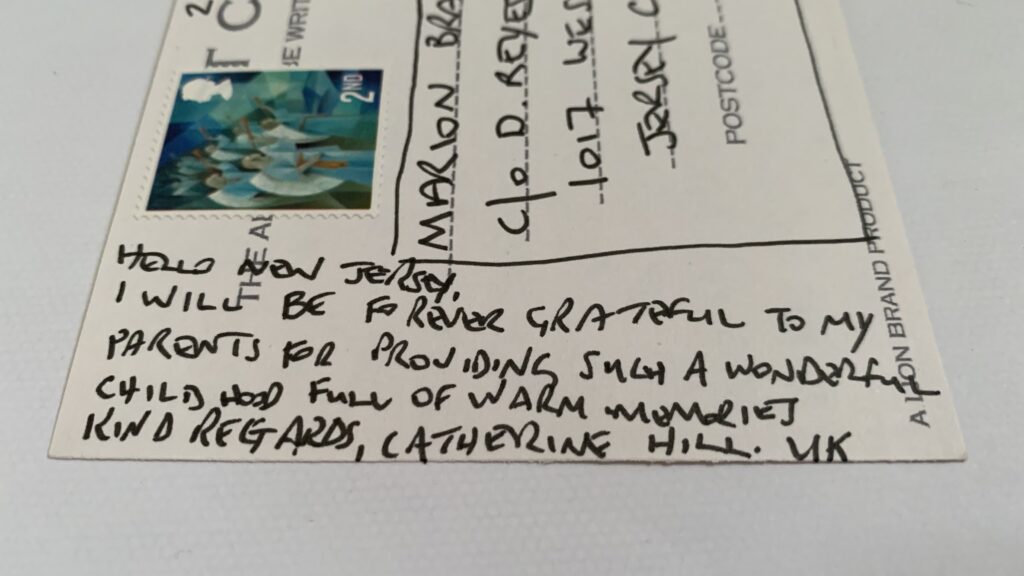 HELLO NEW JERSEY,
I WILL BE FOREVER GRATEFUL TO MY
PARENTS FOR PROVIDING SUCH A WONDERFUL
CHILDHOOD FULL OF WARM MEMORIES
KIND REGARDS, CATHERINE HILL. UK
MARION
C/O D. REYES
1017
JERSEY
POSTCODE
A LION BRAND PRODUCT
2ND
THE